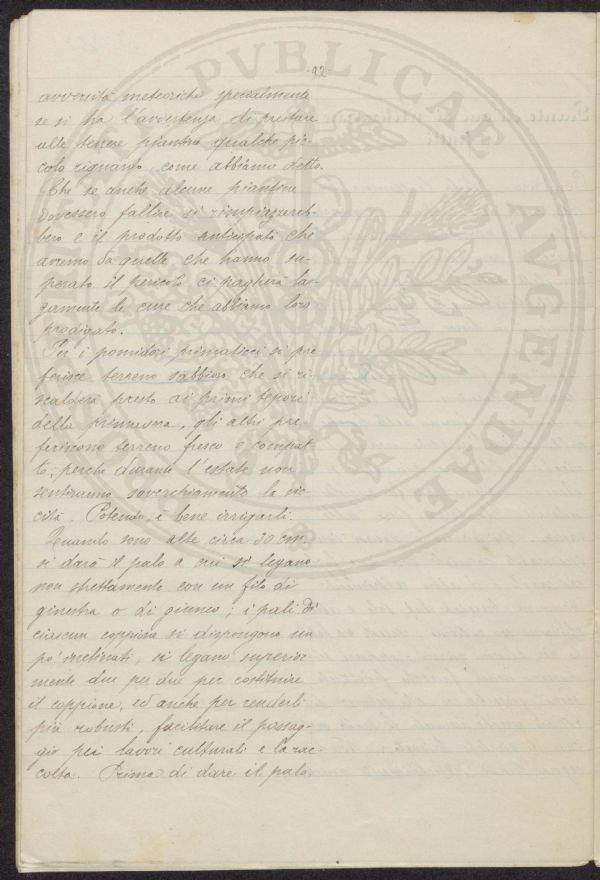 -92-
avversità meteoriche specialmente
se si ha l'avvertenza di prestare
alle tenere piantine qualche pic-
colo riguardo come abbiamo detto.
Che se anche alcune piantine
dovessero fallire si rimpiazzareb-
bero e il prodotto anticipato che
avremo da quelle che hanno su-
perato il pericolo ci pagherà lar-
gamente le cure che abbiamo loro
prodigato.
Per i pomidori primaticci si pre
ferisce terreno sabbioso che si ri-
scalderà presto ai primi tepori
della primavera, gli altri pre-
feriscono terreno fresco e compat-
to, perchè durante l'estate non
sentiranno soverchiamento la sic-
cità. Potendo, è bene irrigarli.
Quando sono alte circa 30 cm.
si darà il palo a cui si legano
non strettamente con un filo di
ginestra o di giunco; i pali di
ciascun coppione si dispongono un
po' inclinati, si legano superior-
mente due per due per costituire
il coppione, ed anche per renderli
più robusti, facilitare il passag-
gio pei lavori culturali e la rac-
colta. Prima di dare il palo,
PVBLICAE
AVGENDAE